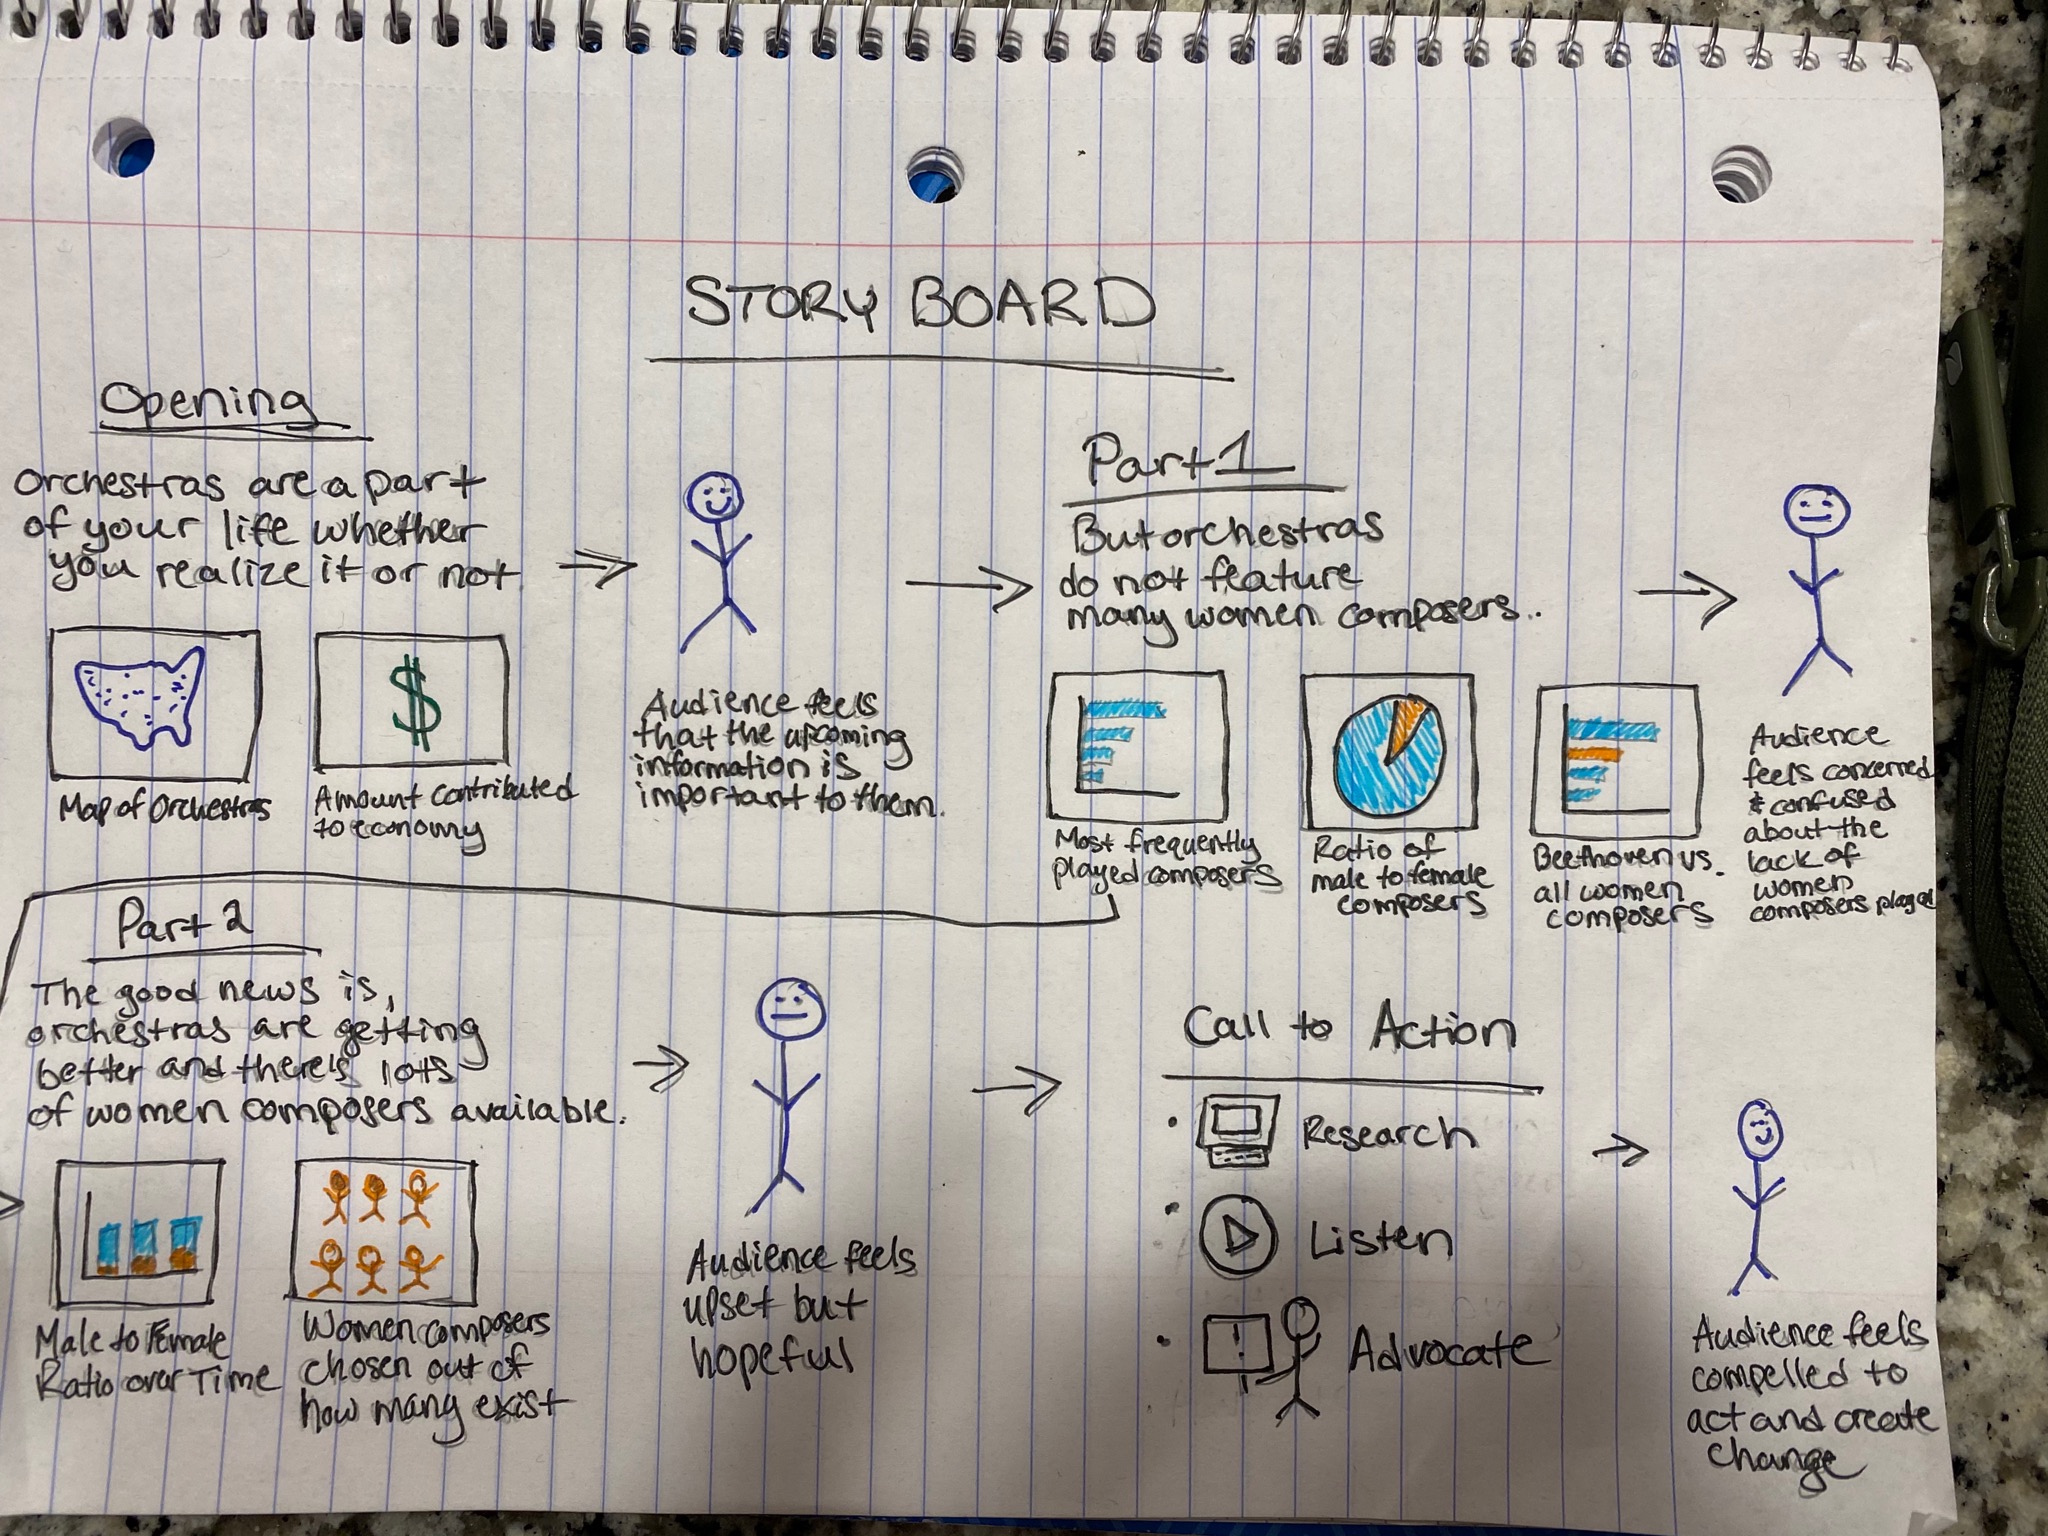 STORY BOARD
Opening
Orchestras are a part
of your life whether
you realize it or not
Map of Orchestras
$
Amount contributed
to economy
Audience feels
that the upcoming
information is
important to them.
Part 1
But orchestras
do not feature
many women composers..
Most frequently
played composers
Ratio of
male to female
composers
Beethoven vs.
all women
composers
Audience
feels concerned
& confused
about the
lack of
women
composers played
Part 2
The good news is,
orchestras are getting
better and there's lots
of women composers available.
Male to Female
Ratio over Time
Women composers
chosen out of
how many exist
Audience feels
upset but
hopeful
Call to Action
• Research
• Listen
• ! Advocate
Audience feels
compelled to
act and create
change